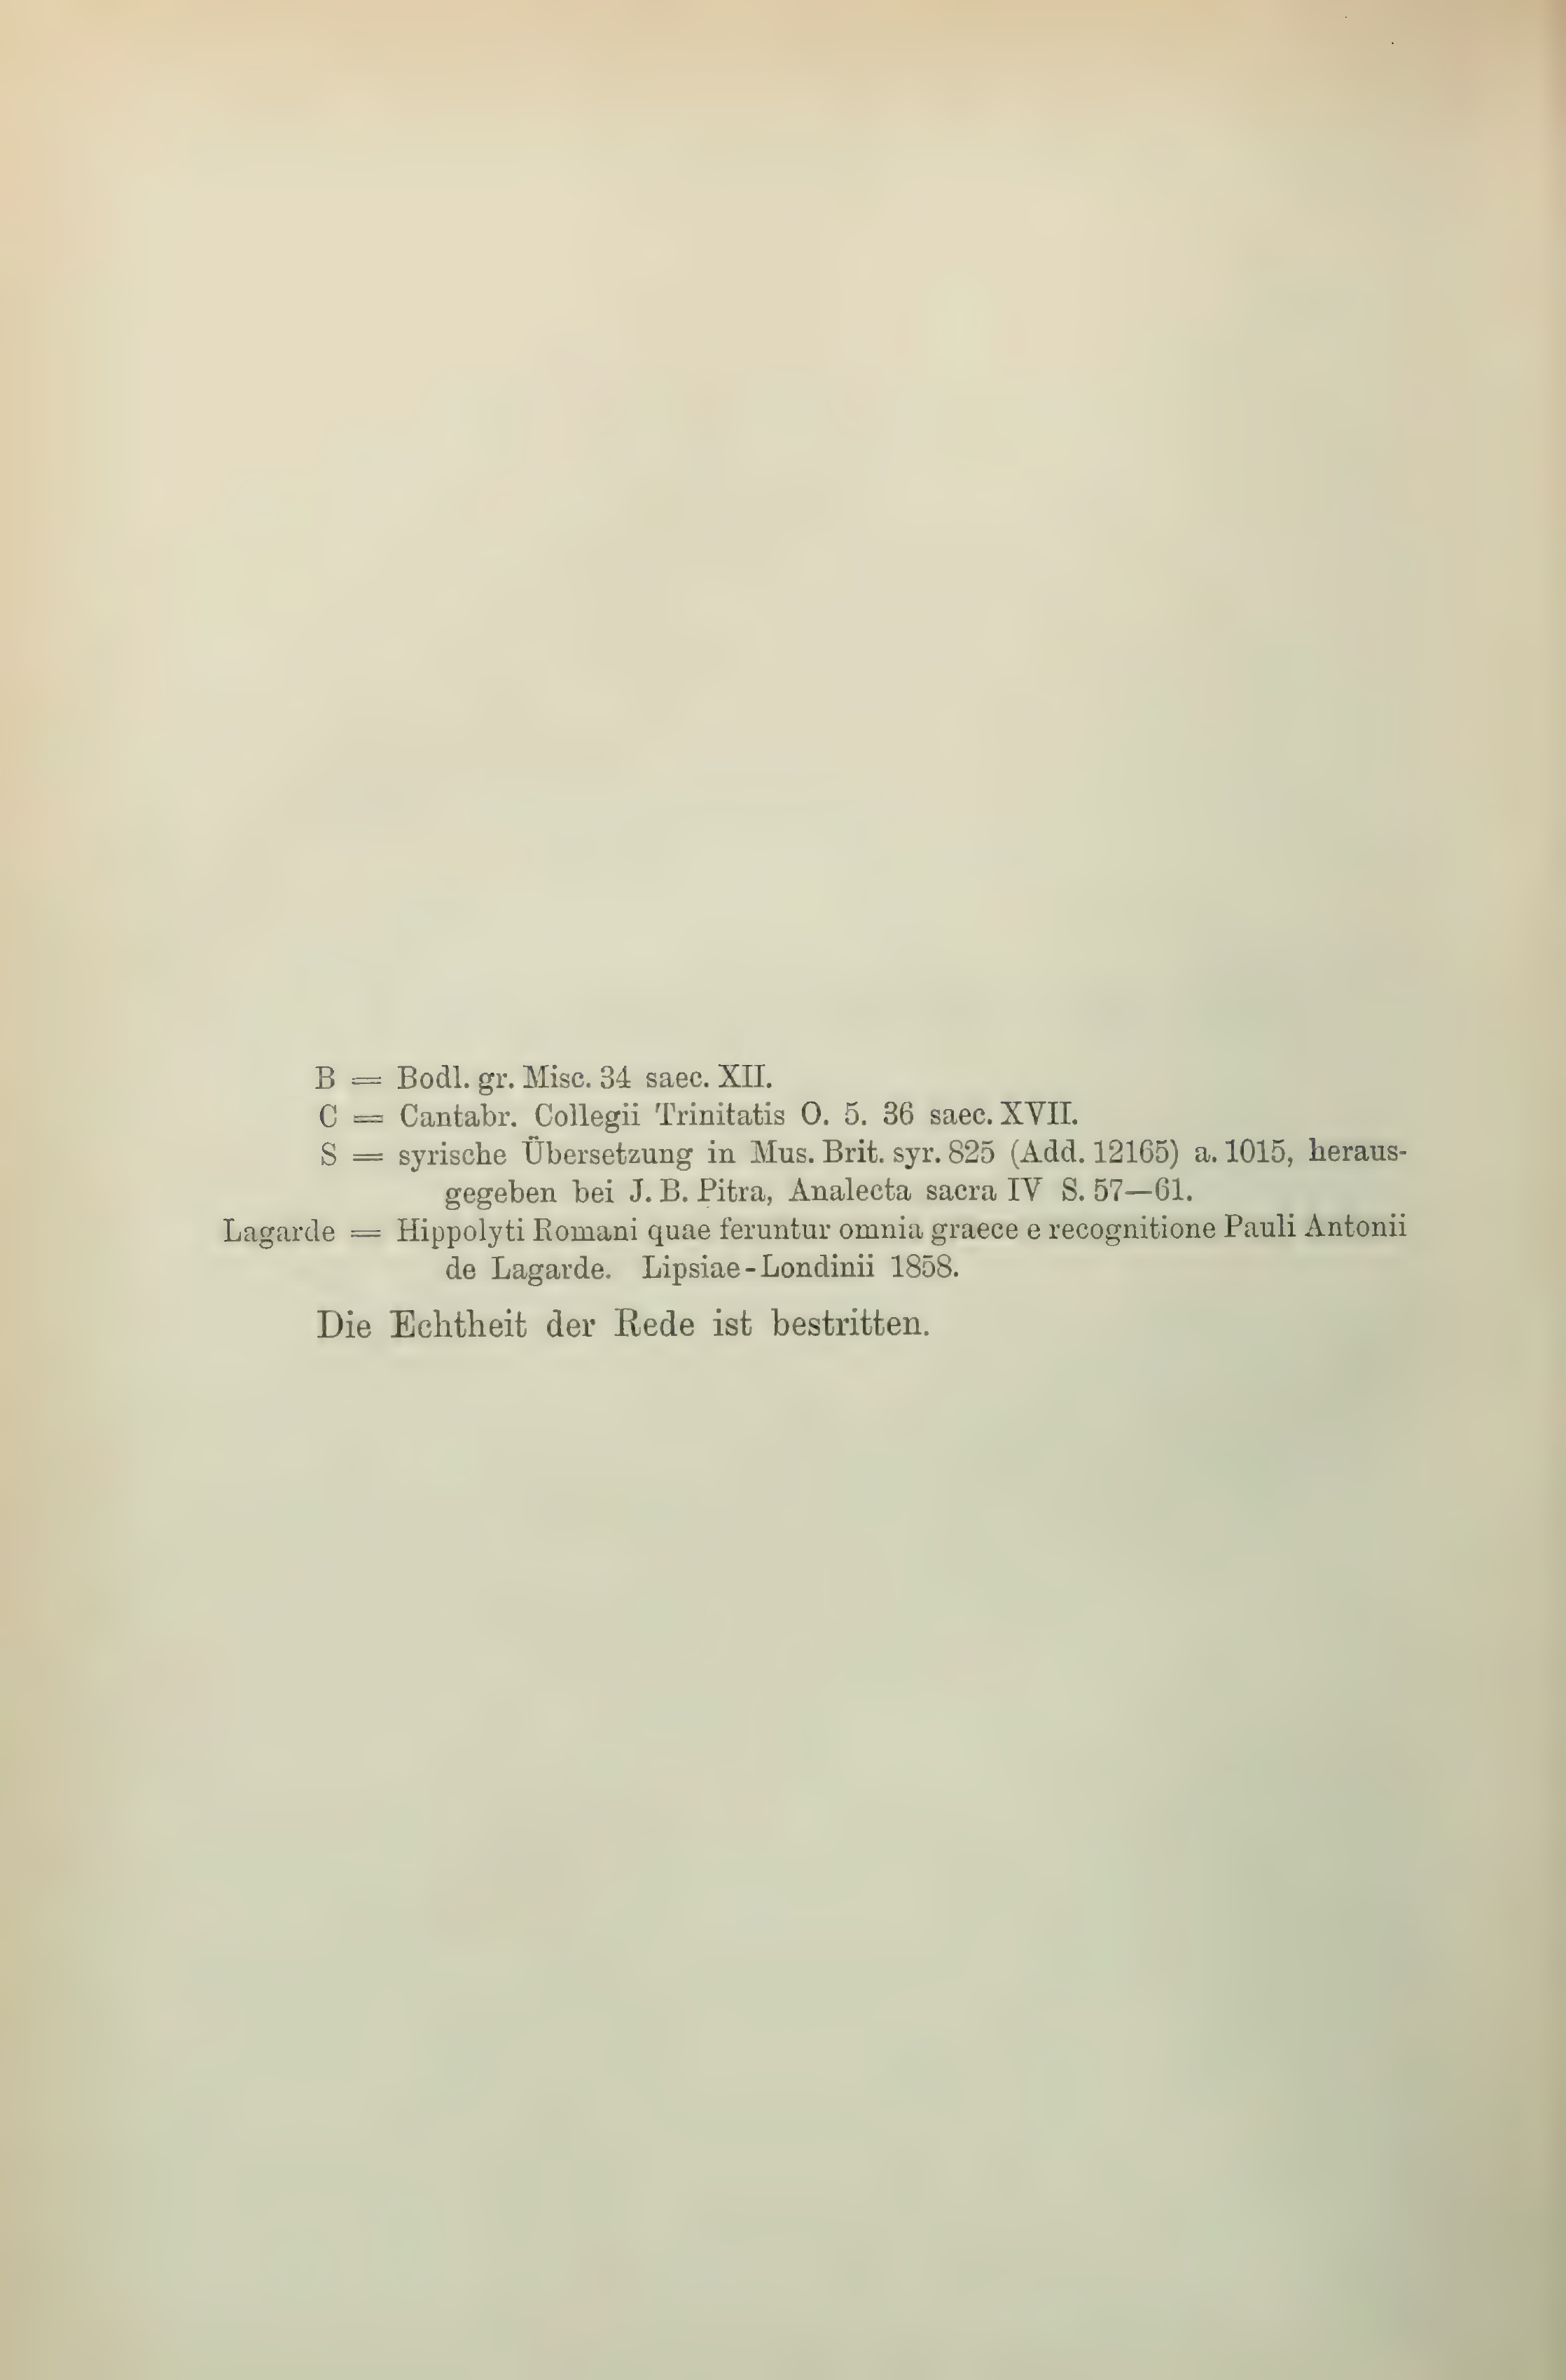 B = Bodl. gr. Misc. 34 saec. XII.
C = Cantabr. Collegii Trinitatis O. 5. 36 saec. XVII.
S = syrische Übersetzung in Mus. Brit. syr. 825 (Add. 12165) a. 1015, heraus-
gegeben bei J. B. Pitra, Analecta sacra IV S. 57—61.
Lagarde = Hippolyti Romani quae feruntur omnia graece e recognitione Pauli Antonii
de Lagarde. Lipsiae-Londinii 1858.
Die Echtheit der Rede ist bestritten.